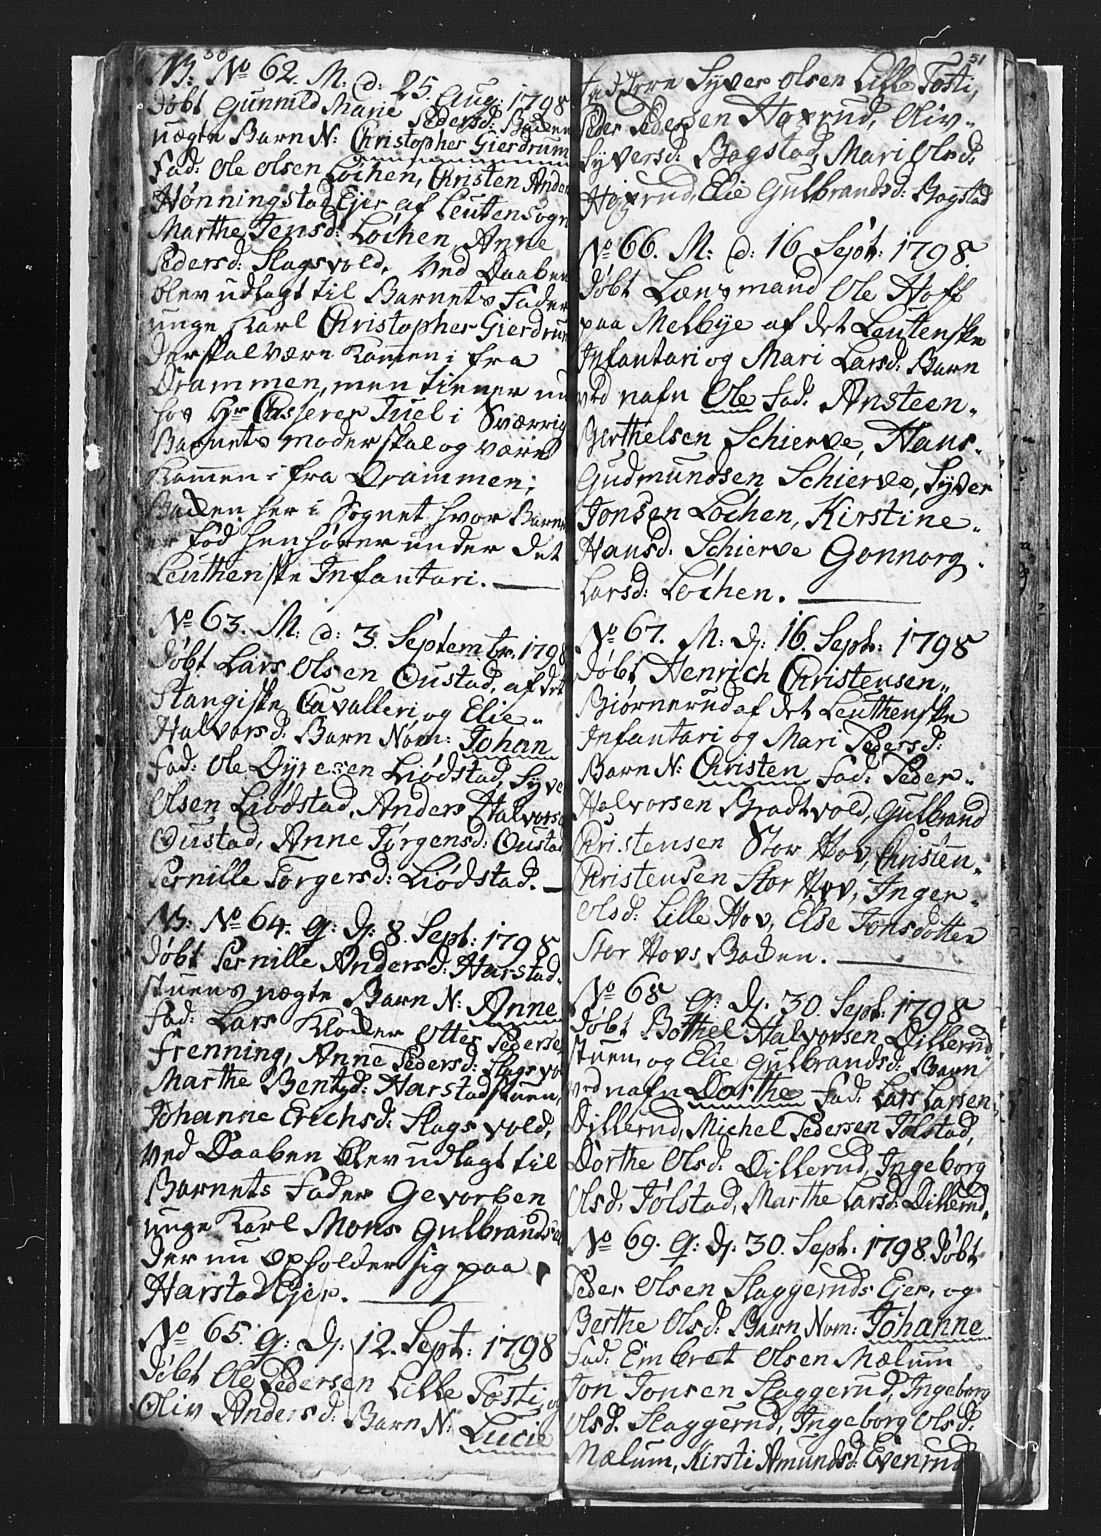 50
NB: No 62. M. d: 25. Aug: 1798
døbt Gunnild Marie Pedersd: Baden
uægte Barn N: Christopher Gierdrum
Fad: Ole Olsen Løchen, Christen Anders
Hønningstad Ejer af Leutensogn
Marthe Jensd: Løchen, Anne
Pedersd: Slagsvold. Ved Daaben
blev udlagt til Barnets Fader
unge Karl Christopher Gierdrum
der skal være kom̄en i fra
Drammen, men tiener nu
hos Hr Casserer Juel i Sværrig
Barnets moder skal og være
kom̄en i fra Drammen;
Baden her i Sognet hvor Barnet
er fød henhører under det
Leuthenske Infantari.
No 63. M: d: 3. Septembr. 1798
døbt Lars Olsen Oustad, af det
Stangiske Cavalleri og Elie
Halvorsd: Barn Nom: Johan
Fad: Ole Dyresen Liødstad, Syve
Olsen Liødstad, Anders Halvors
Oustad, Anne Jørgensd: Oustad
Pernille Torgersd: Liødstad.
NB: No 64. G: D: 8. Sept: 1798
døbt Pernille Andersd: Harstad
stuens uægte Barn N: Anne
Fad: Lars Klocker Otter Peders
Frenning, Anne Pedersd: Slagsvo
Marthe Bentsd: Harstadstuen,
Johanne Erichsd: Slagsvold,
ved Daaben blev udlagt til
Barnets Fader Gevorben
unge Karl Mons Gulbrands
der nu opholder sig paa
Harstad Ejer.
No 65. G: D: 12. Sept: 1798
døbt Ole Pedersen Lille Tosti, og
Oliv Andersd: Barn N: Lucie
51
Faddere Syver Olsen Lille Tosti,
Peder Pedersen Hoxrud, Oliv
Syversd: Bagstad, Mari Olsd:
Hoxrud, Elie Gulbrandsd: Bagstad
No 66. M: d: 16. Sept: 1798
døbt Lænsmand Ole Hoff
paa Melbye af det Leutenske
Infantari og Mari Larsd: Barn
ved nafn Ole Fad. Ansteen
Berthelsen Schierve, Hans
Gudmundsen Schierve, Syver
Jonsen Løchen, Kirstine
Hansd: Schierve Gonnorg
Larsd: Løchen.
No 67. M: D: 16. Sept: 1798
døbt Henrich Christensen
Biørnerud af det Leuthenske
Infantari og Mari Pedersd:
Barn N: Christen Fad: Peder
Halvorsen Bradtvold, Gulbrand
Christensen Stor Hov, Christen
Christensen Stor Hov, Inger
Olsd: Lille Hov, Else Jonsdotter
Stor Hovs Baden.
No 68 G: D: 30. Sept: 1798
døbt Bothel Halvorsen Dillerud
stuen og Elie Gulbrandsd: Barn
ved nafn Dorthe Fad: Lars Larsen
Dillerud, Michel Pedersen Jølstad,
Dorthe Olsd: Dillerud, Ingeborg
Olsd. Jølstad, Marthe Larsd: Dillerud.
No 69. G: D: 30. Sept: 1798 døbt
Peder Olsen Slaggeruds Ejer, og
Berthe Olsd: Barn Nom: Johanne
Fad: Embret Olsen Mælum
Jon Jonsen Slaggerud, Ingeborg
Olsd. Slaggerud, Ingeborg Olsd:
Mælum, Kirsti Amundsd. Evenrud